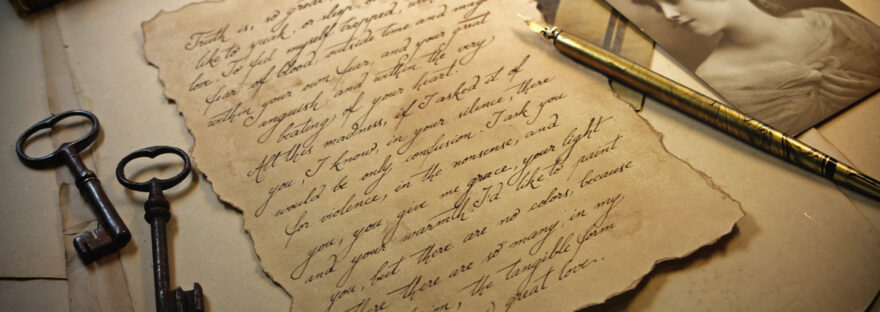 Truth is, so great
like to speak, or sleep, or
love. To feel myself trapped, wi
fear of blood, outside time and magi
within your own fear, and your great
anguish, and within the very
beating of your heart.
All this madness, if I asked it of
you, I know, in your silence, there
would be only confusion. I ask you
for violence, in the nonsense, and
you, you give me grace, your light
and your warmth. I'd like to paint
you, but there are no colors, because
there are so many, in my
ion, the tangible form
great love..